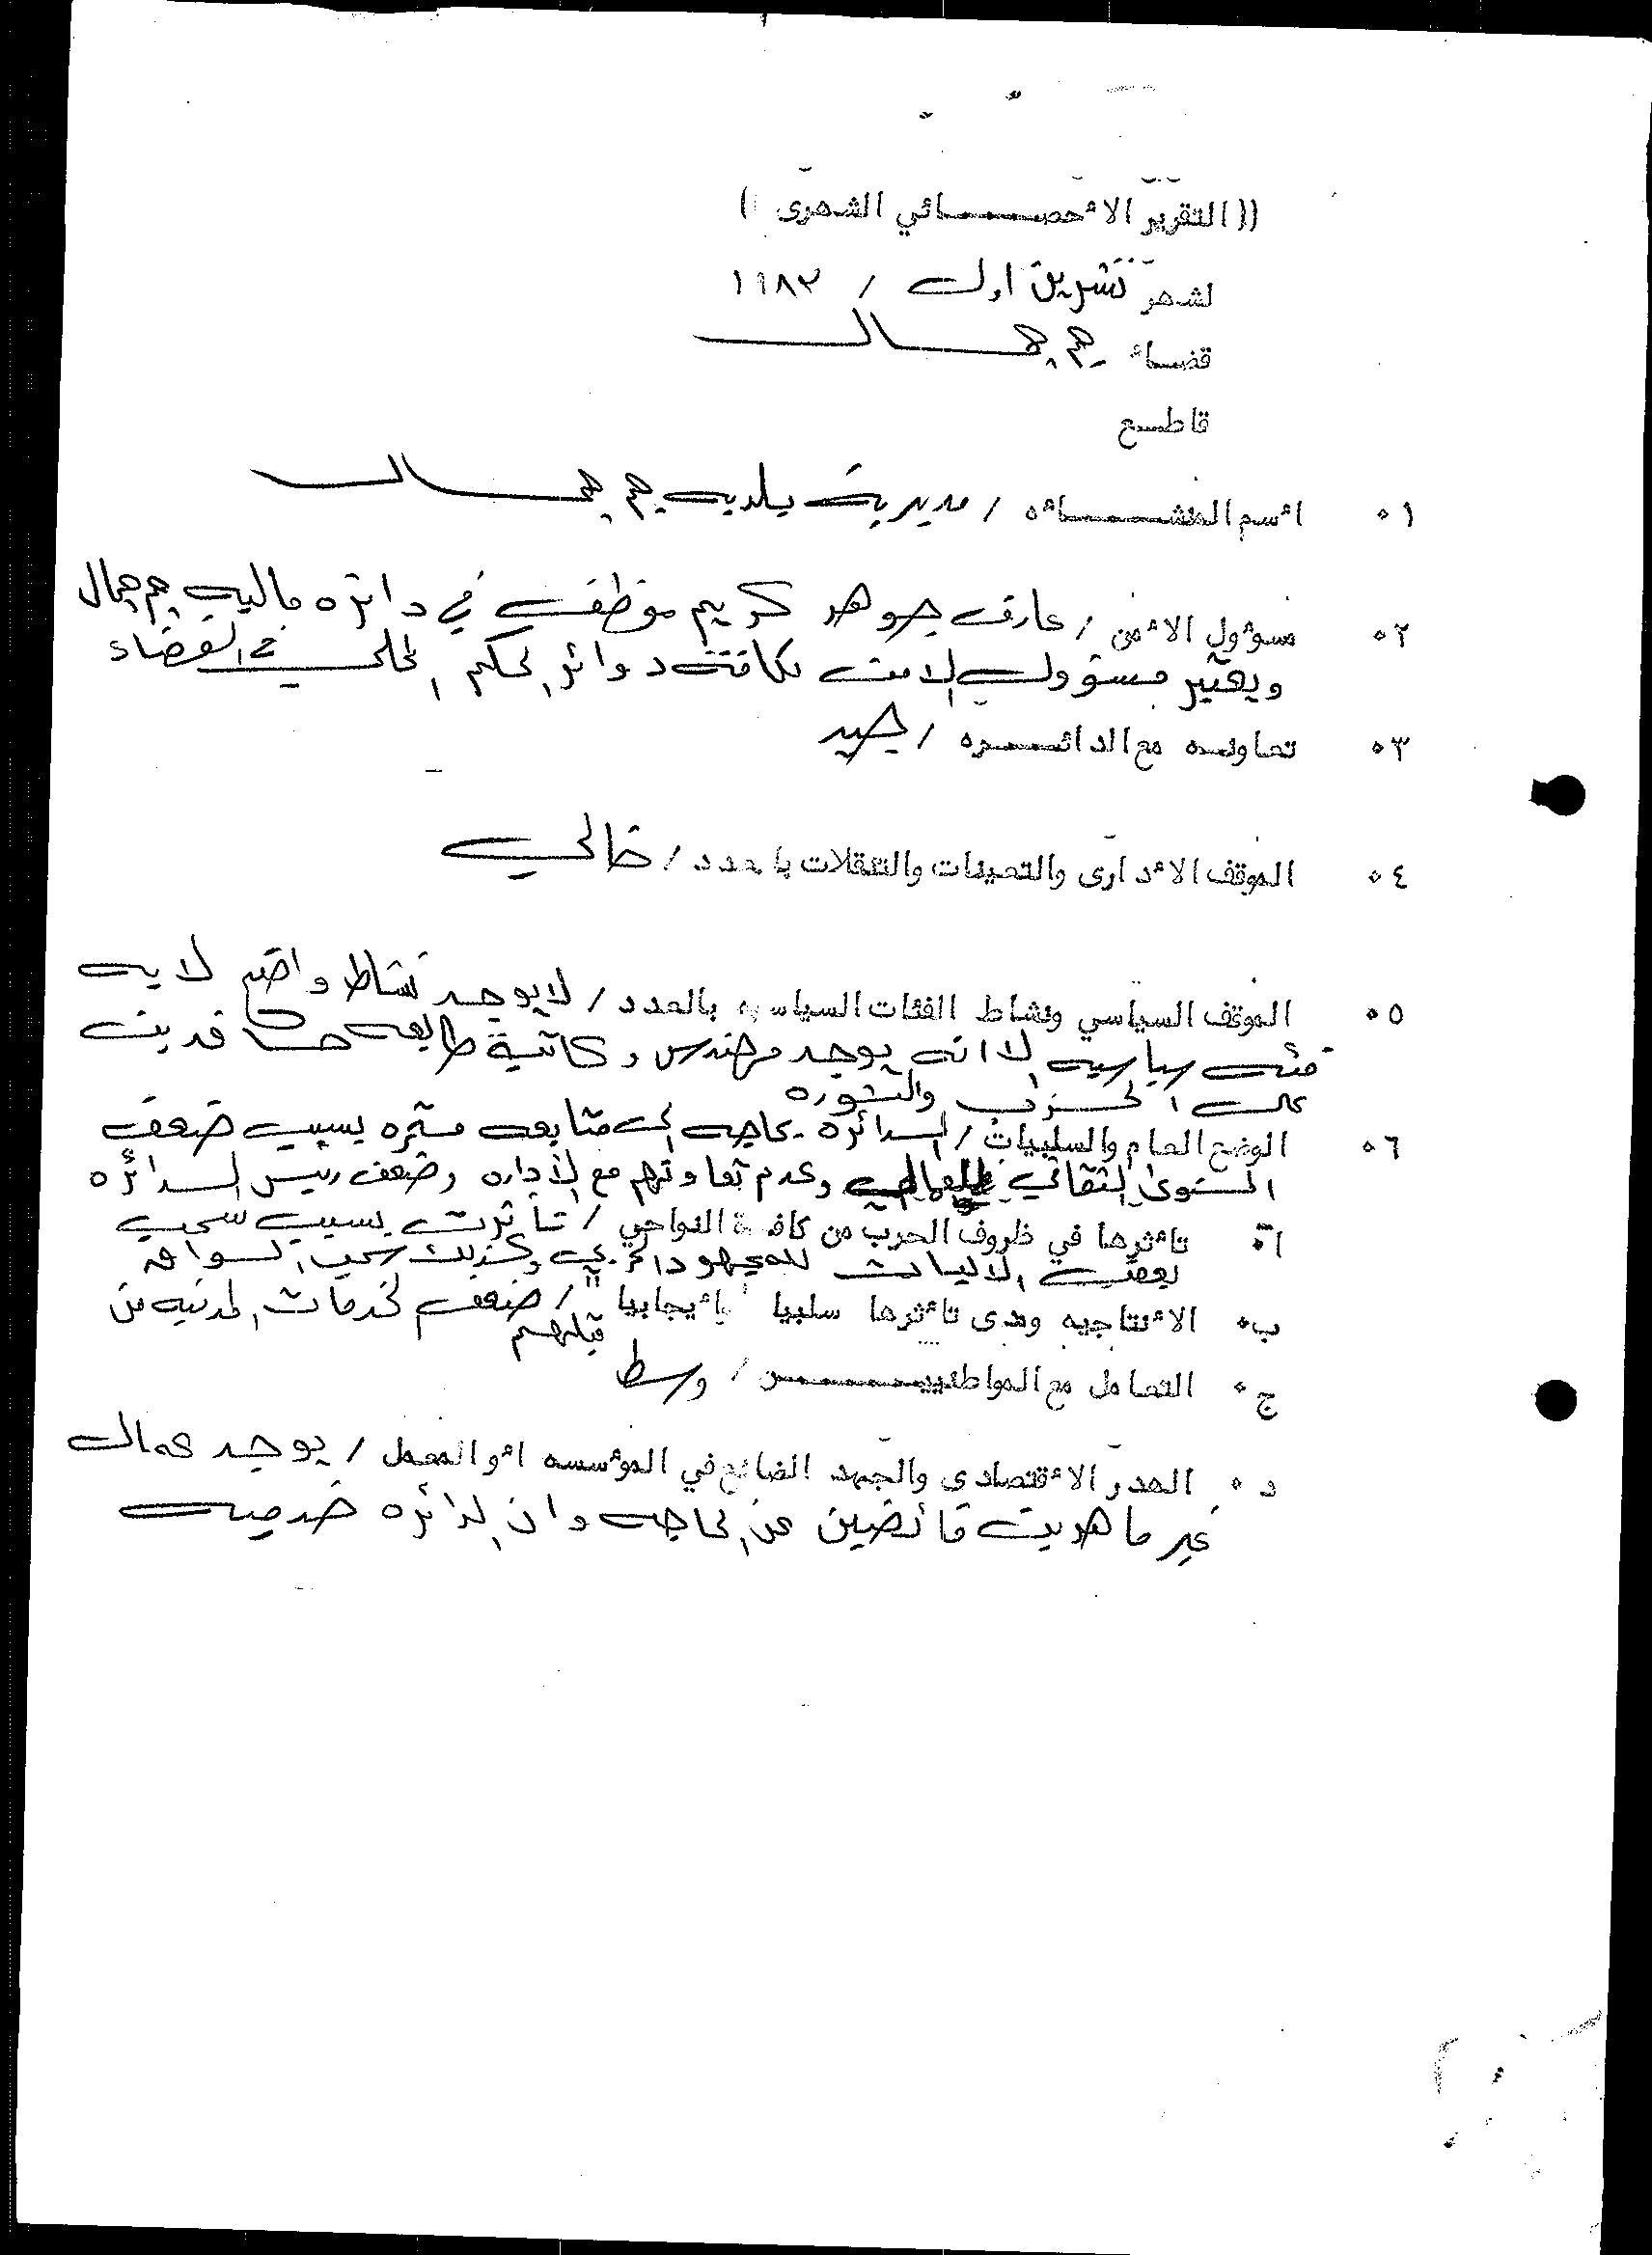 (( التقرير الأحصائي الشهرى ))
لشهر تشرين اول / ١٩٨٣
قضاء جم جمال
قاطع
٠١ أسم المنشأه / مديرية بلدية جم جمال
٠٢ مسؤول الأمن / عارف جوهر كريم موظف في دائرة مالية جم جمال
ويعتبر مسؤول الامن لكافة دوائر الحكم المحلي في القضاء
٠٣ تعاونه مع الدائره / جيد
٠٤ الموقف الأدارى والتعينات والتنقلات بالعدد / خالي
٠٥ الموقف السياسي ونشاط الفئات السياسيه بالعدد / لايوجد نشاط واضح لاية
فئة سياسية الا انه يوجد مهندس وكاتبة طابعة حاقدين
على الحزب والثورة
٠٦ الوضع العام والسلبيات / الدائرة بحاجه الى متابعه مستمره بسبب ضعف
المستوى الثقافي وعدم تعاونهم مع الادارة وضعف رئيس الدائرة
أ٠ تأثرها في ظروف الحرب من كافة النواحي / تأثرت بسبب سحب
بعض الاليات للمجهود الحربي وكذلك سحب السواق
ب٠ الأنتاجيه ومدى تأثرها سلبيا بأيجابيا / ضعف الخدمات المدنيه من
قبلهم
ج٠ التعامل مع المواطنين / وسط
د٠ الهدر الأقتصادى والجهد الضائع في المؤسسه أو المعمل / يوجد عمال
غير ماهرين فائضين عن الحاجه وان الدائرة خدمية